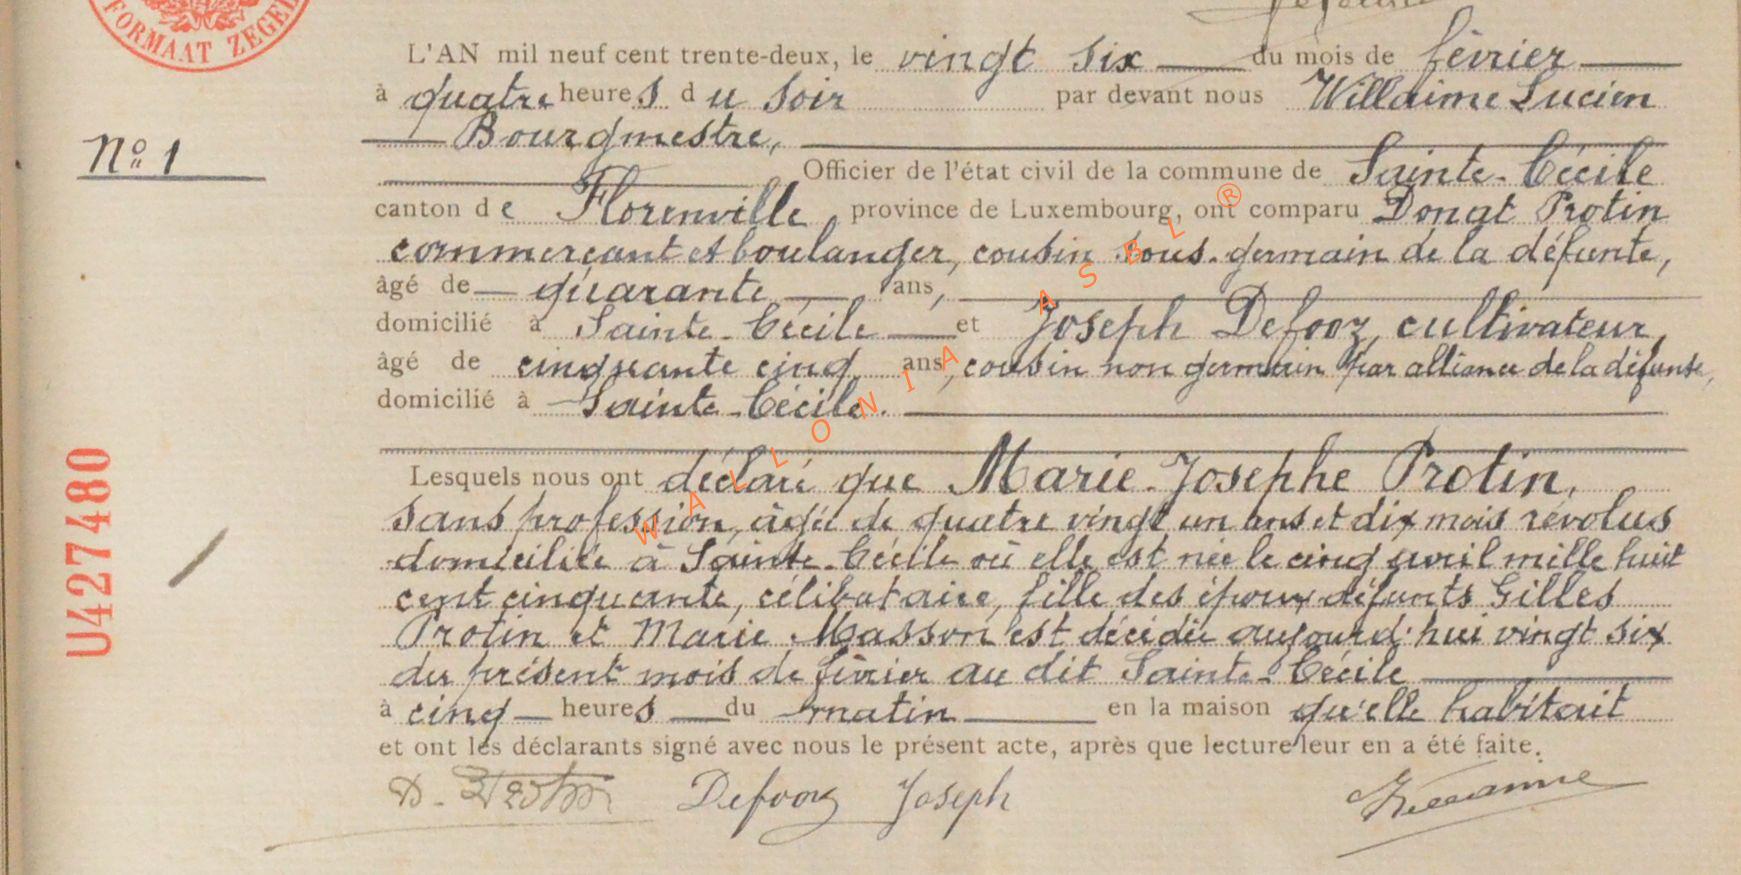 FORMAAT ZEGEL
L'AN mil neuf cent trente-deux, le vingt six du mois de février
à quatre heures du soir par devant nous Willaime Lucien
Bourgmestre,
Nº 1
Officier de l'état civil de la commune de Sainte-Cécile
canton de Florenville, province de Luxembourg, ont comparu Donat Protin
commerçant et boulanger, cousin sous-germain de la défunte,
âgé de quarante ans,
domicilié à Sainte-Cécile et Joseph Defooz, cultivateur,
âgé de cinquante cinq ans, cousin non germain par alliance de la défunte,
domicilié à Sainte-Cécile.
Lesquels nous ont déclaré que Marie-Josephe Protin,
sans profession, âgée de quatre vingt un ans et dix mois révolus
domiciliée à Sainte-Cécile où elle est née le cinq avril mille huit
cent cinquante, célibataire, fille des époux défunts Gilles
Protin et Marie Masson est décédée aujourd'hui vingt six
du présent mois de février au dit Sainte-Cécile
à cinq heures du matin en la maison qu'elle habitait
et ont les déclarants signé avec nous le présent acte, après que lecture leur en a été faite.
D. Protin Defooz Joseph Willaime
U427480
WALLONIA ASBL ®